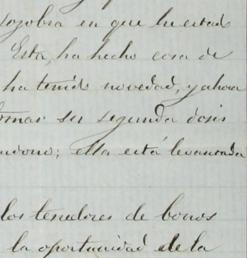 sozobra en que he estado
Esta, ha hecho cosa de
ha tenido novedad, y ahora
tomar su segunda dosis
ella está levantada
los tenedores de bonos
la oportunidad de la